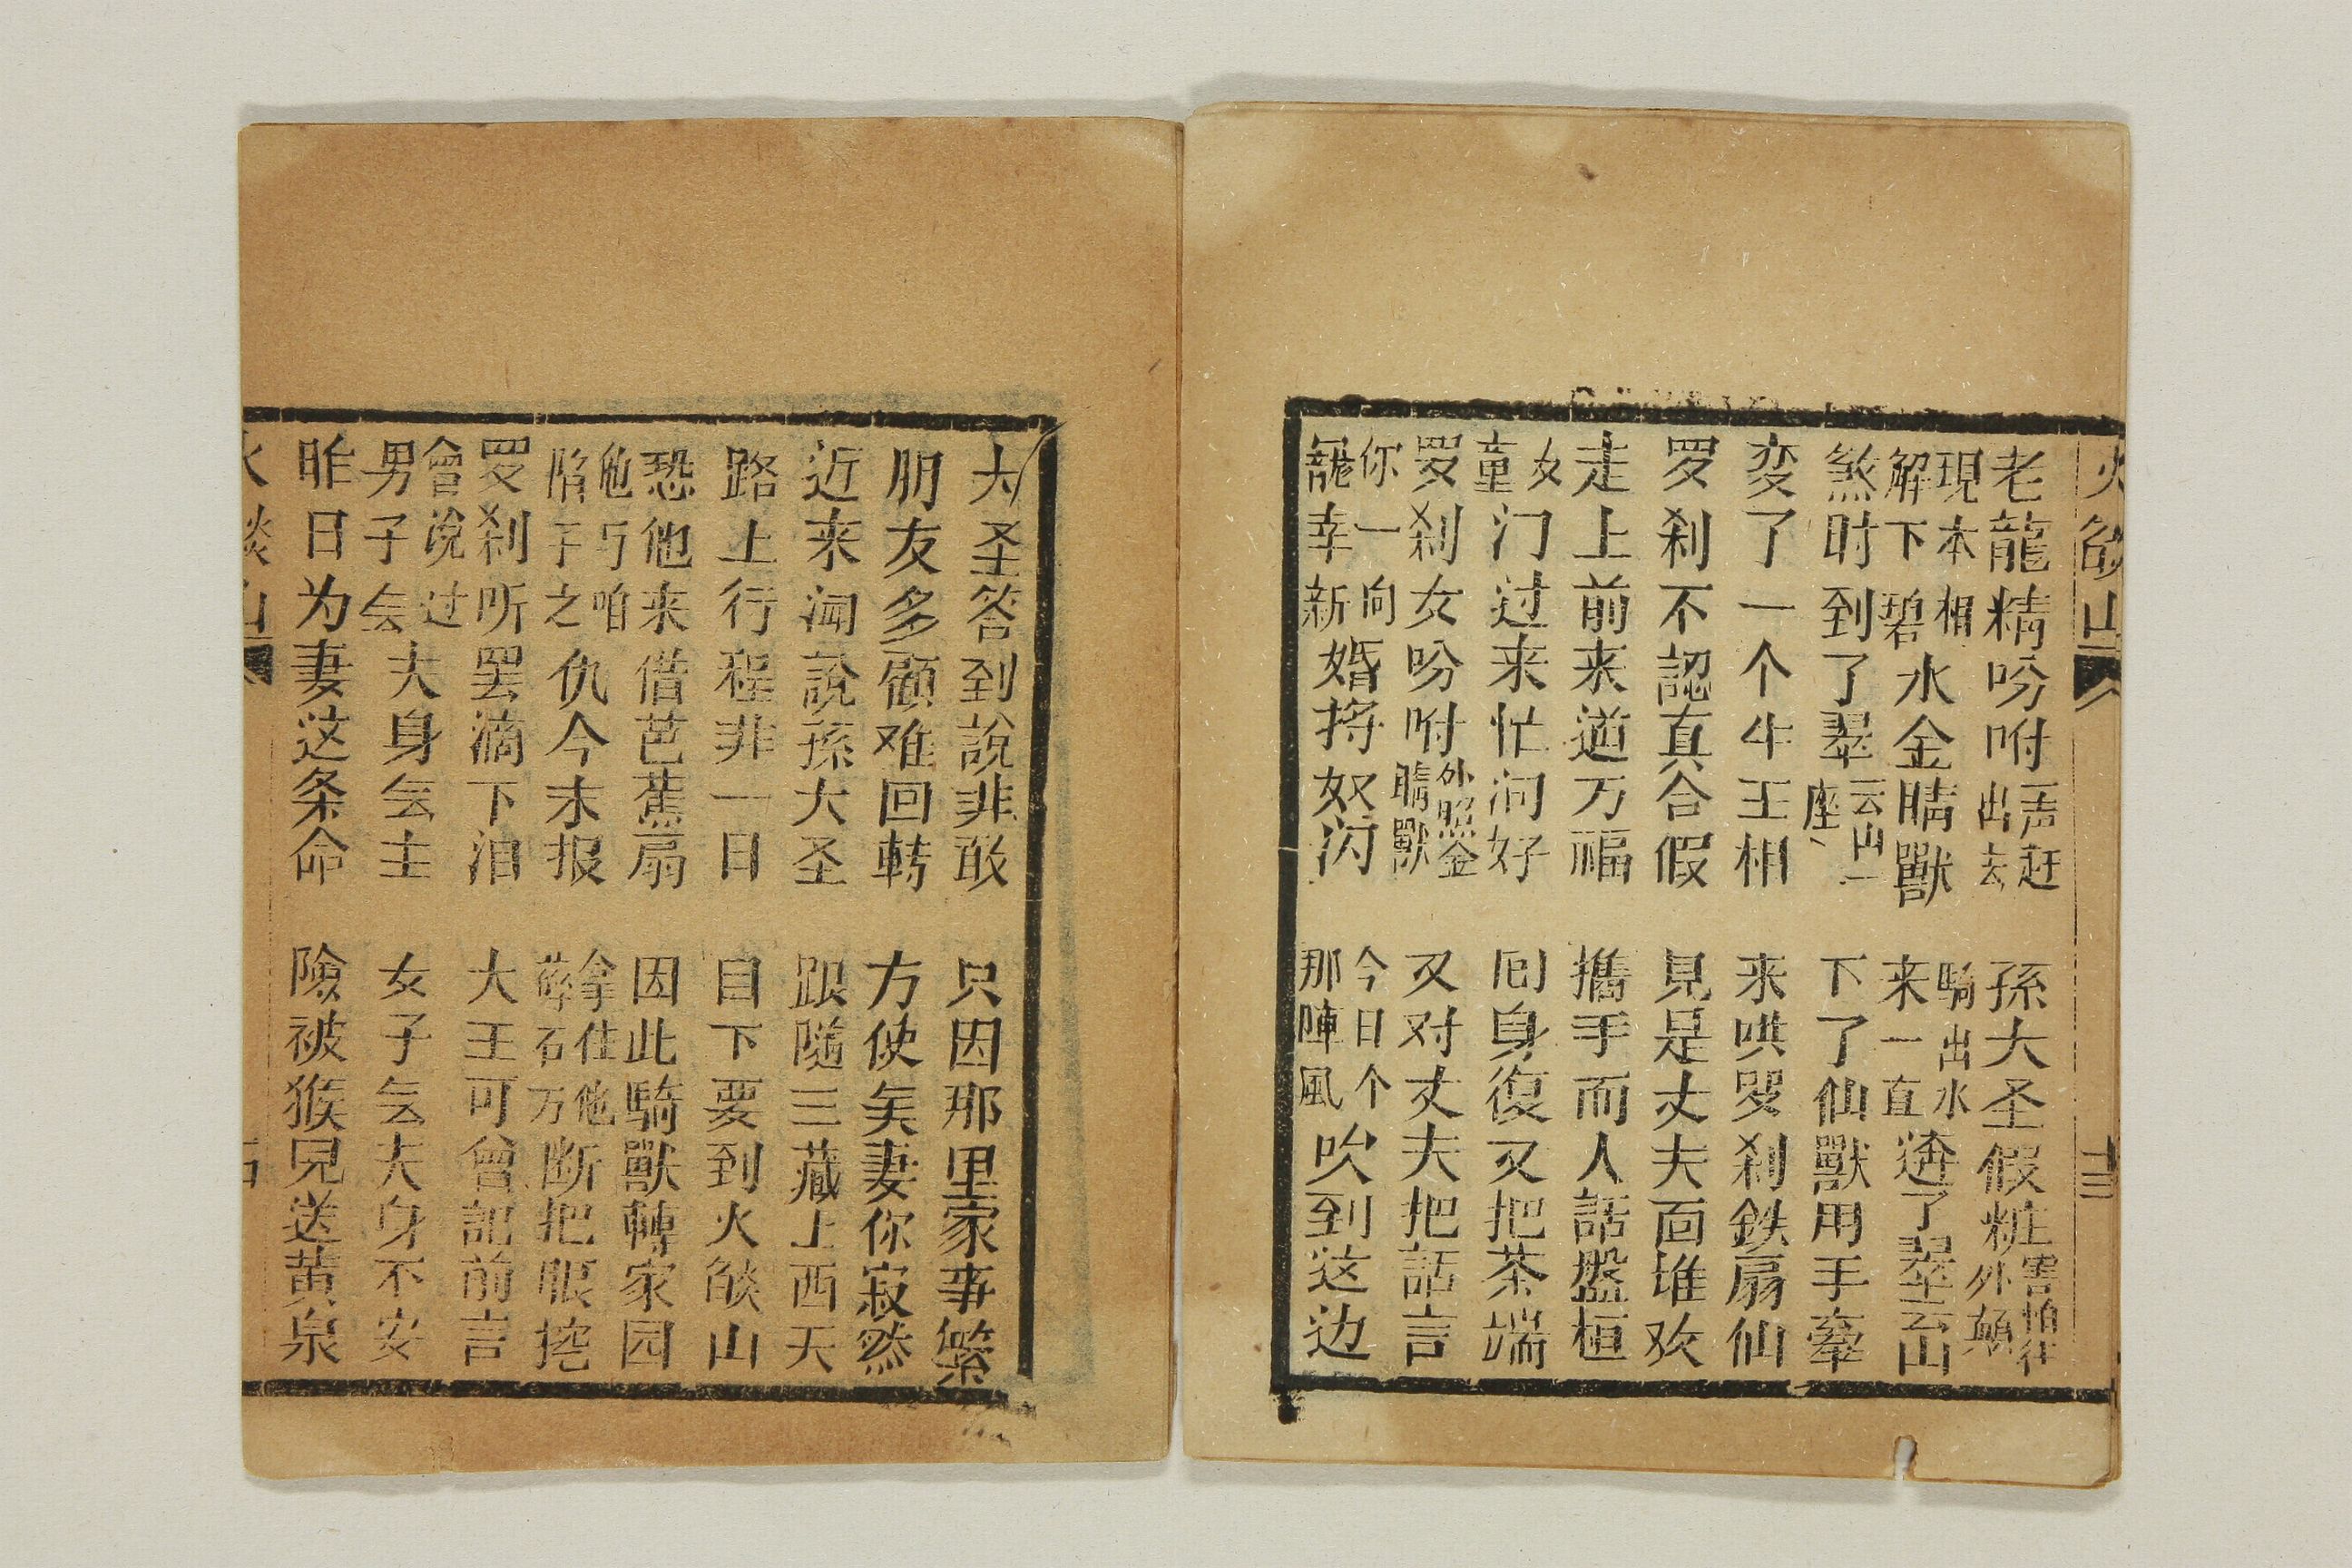 火燄山
十三
老龍精吩咐一声赶出去 孫大圣假粧害怕往外顛
現本相解下碧水金睛獸 騎出水来一直逩了翠云山
煞时到了翠云山一座 下了仙獸用手牽
变了一个牛王相 来哄罗刹鉄扇仙
罗刹不認真合假 見是丈夫面堆欢
走上前来道万福 攜手而人話盤桓
女童门过来忙问好 回身復又把茶端
罗刹女吩咐外照金睛獸 又对丈夫把話言
你一向寵幸新婚将奴闪 今日个那陣風吹到这边
大圣答到說非敢 只因那里家事繁
朋友多顧难回轉 方使矣妻你寂然
近来闻說孫大圣 跟隨三藏上西天
路上行程非一日 目下要到火燄山
恐他来借芭蕉扇 因此騎獸轉家园
他与咱陷子之仇今未报 拿住他碎石万断把眼挖
罗刹听罢滴下泪 大王可曾記前言
曾说过男子无夫身无主 女子无夫身不安
昨日为妻这条命 險被猴兒送黄泉
火燄山